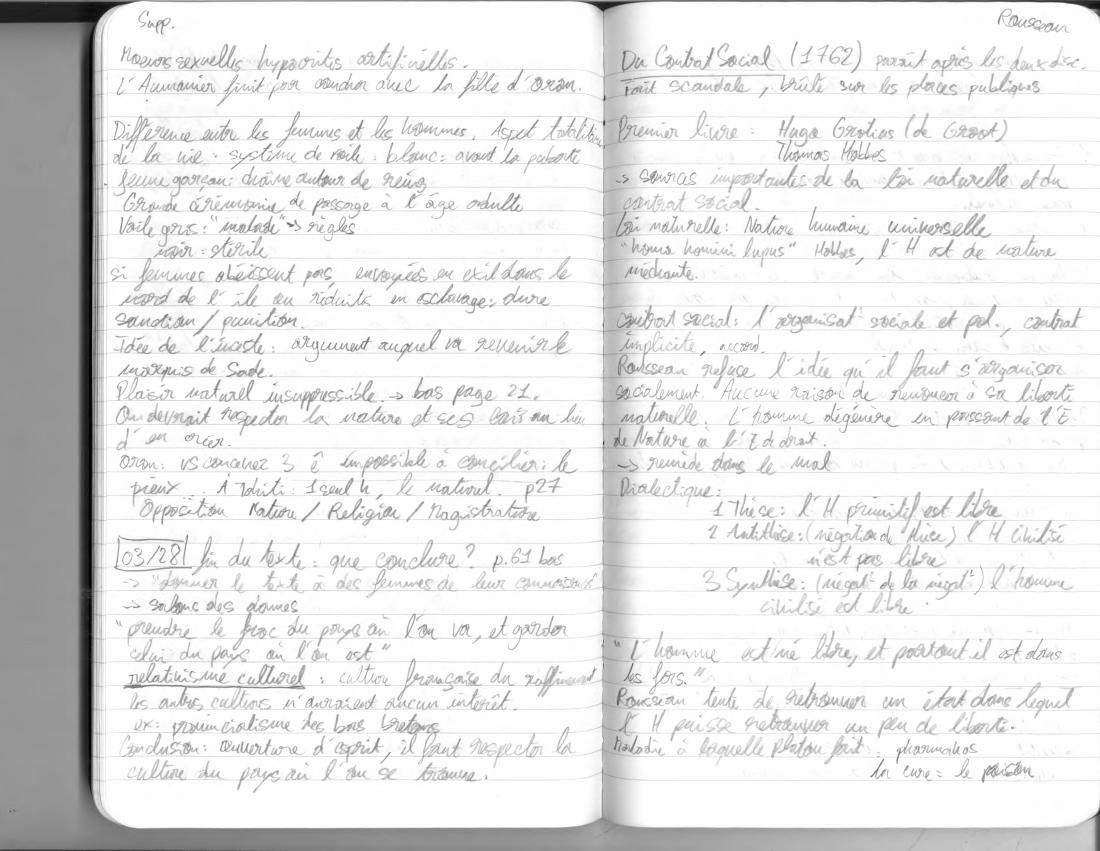 Supp.
Moeurs sexuelles hypocrites artificielles.
L'Aumonier finit par coucher avec la fille d'Orou.
Différence entre les femmes et les hommes. Aspect totalitaire
de la vie : système de voile : blanc : avant la puberté
jeune garçon : chaîne autour de reins
Grande cérémonie de passage à l'âge adulte
Voile gris : "malade" -> règles
noir = stérile
si femmes obéissent pas, envoyées en exil dans le
nord de l'île ou réduits en esclavage : dure
sanction / punition.
Idée de l'inceste : argument auquel va revenir le
marquis de Sade.
Plaisir naturel insuppressible -> bas page 21.
On devrait respecter la nature et ses lois au lieu
d'en créer.
Orou : vs concevez 3 ê impossible à concilier : le
pieux ... À Tahiti : 1 seul h, le naturel. p27
Opposition Nature / Religion / Magistrature
03/28 fin du texte : que conclure ? p.61 bas
-> "donner le texte à des femmes de leur connaissance"
-> salons des dames
"prendre le froc du pays où l'on va, et garder
celui du pays où l'on est"
relativisme culturel : culture française du raffinement
les autres cultures n'auraient aucun intérêt.
ex : provincialisme des bas bretons
Conclusion : ouverture d'esprit, il faut respecter la
culture du pays où l'on se trouve.
Rousseau
Du Contrat Social (1762) paraît après les deux disc.
Fait scandale, brûlé sur les places publiques
Premier livre : Hugo Grotius (de Groot)
Thomas Hobbes
-> sources importantes de la loi naturelle et du
contrat social.
Loi naturelle : Nature humaine universelle
"homo homini lupus" Hobbes, l'H est de nature
méchante.
contrat social : l'organisat° sociale et pol., contrat
implicite, accord.
Rousseau refuse l'idée qu'il faut s'organiser
socialement. Aucune raison de renoncer à sa liberté
naturelle. L'homme dégénère en passant de l'E
de Nature à l'E de droit.
-> remède dans le mal
Dialectique :
1 Thèse : l'H primitif est libre
2 Antithèse : (négation de thèse) l'H civilisé
n'est pas libre
3 Synthèse : (négat° de la négat°) l'homme
civilisé est libre.
"L'homme est né libre, et partout il est dans
les fers."
Rousseau tente de retrouver un état dans lequel
l'H puisse retrouver un peu de liberté.
Maladie à laquelle Platon fait : pharmakos
la cure = le poison